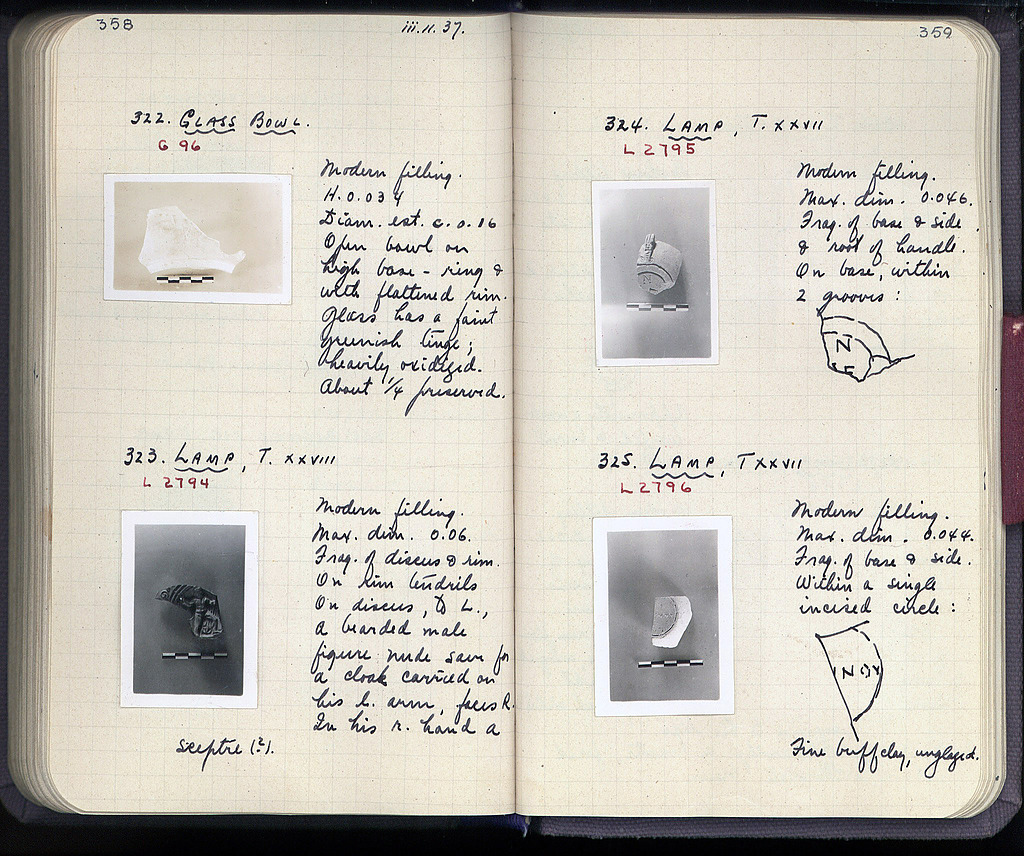 358
iii.11.37.
322. GLASS BOWL.
G 96
Modern filling.
H. 0.034
Diam. est. c. 0.16
Open bowl on
high base-ring &
with flattened rim.
Glass has a faint
greenish tinge;
heavily oxidized.
About 1/4 preserved.
323. LAMP, T. XXVIII
L 2794
Modern filling.
Max. dim. 0.06.
Frag. of discus & rim.
On rim tendrils
On discus, to L.,
a bearded male
figure nude save for
a cloak carried on
his l. arm, faces R.
In his r. hand a
sceptre (?).
359
324. LAMP, T. XXVII
L 2795
Modern filling.
Max. dim. 0.046.
Frag. of base & side
& root of handle.
On base, within
2 grooves:
N
325. LAMP, T XXVII
L 2796
Modern filling.
Max. dim. 0.044.
Frag. of base & side.
Within a single
incised circle:
N
Fine buff clay, unglazed.